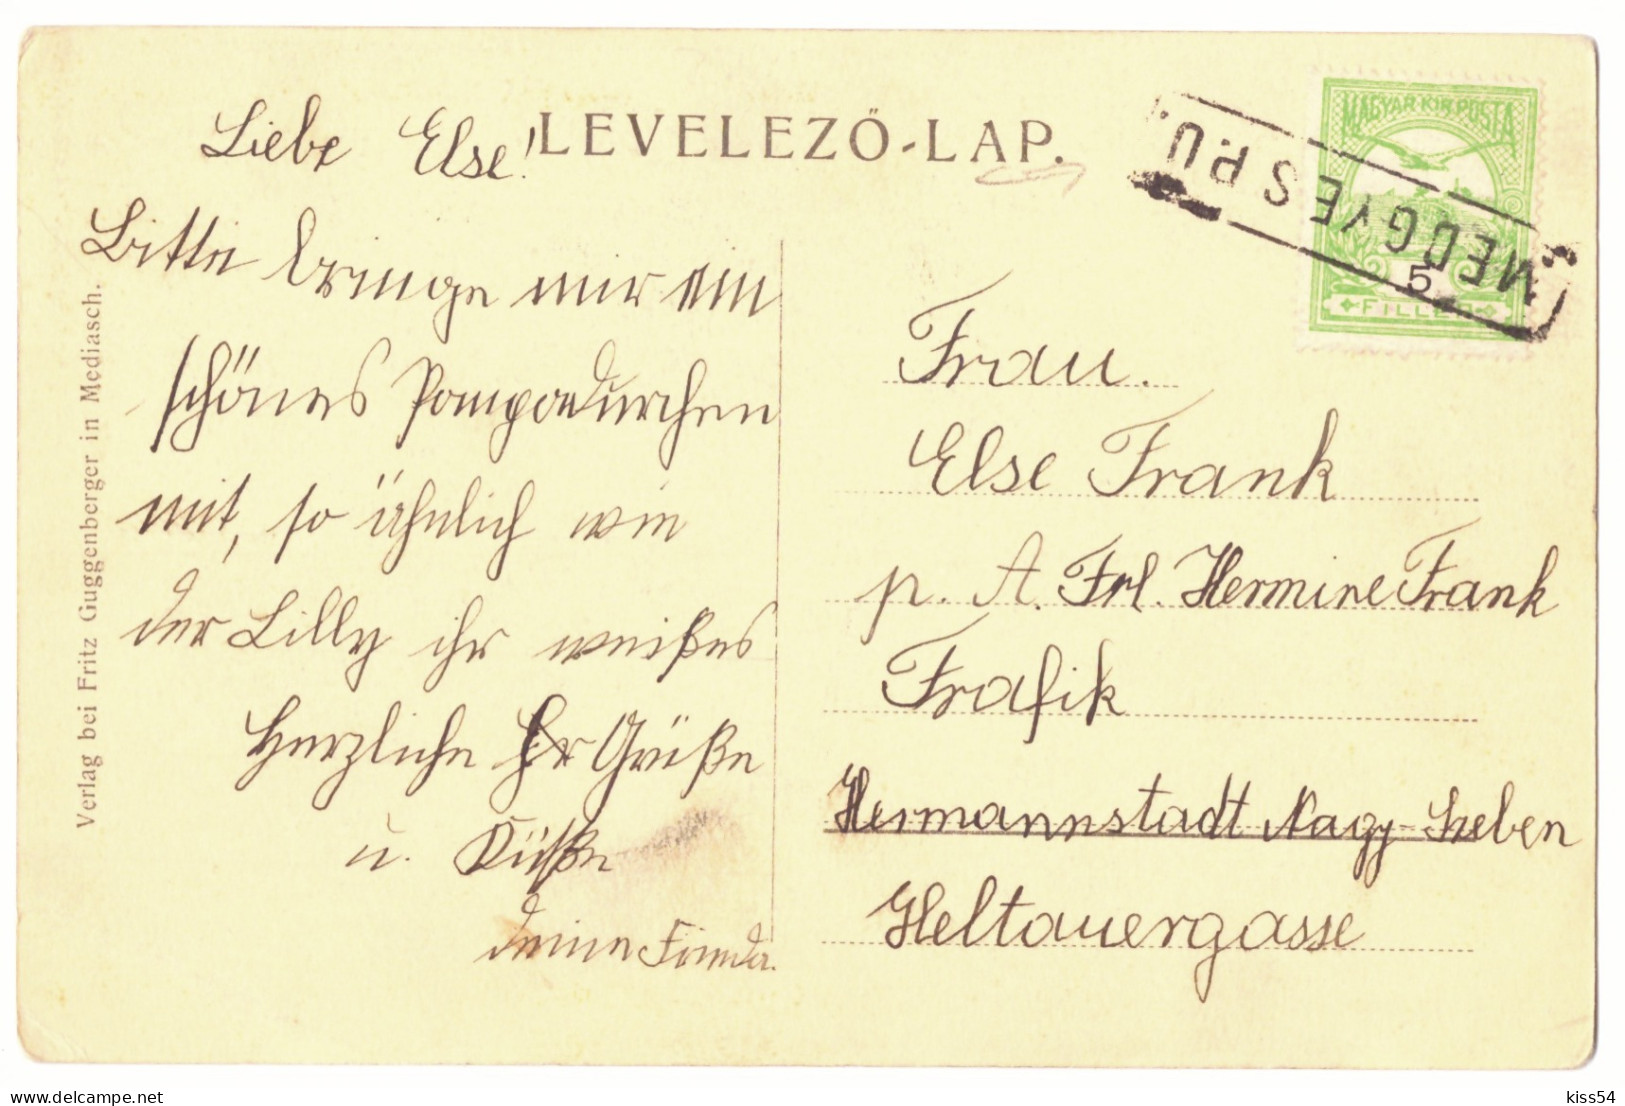 LEVELEZŐ-LAP.
MAGYAR KIR. POSTA
5
FILLÉR
MEDGYES P.U.
Verlag bei Fritz Guggenberger in Mediasch.
Liebe Else!
Bitte bringe mir ein
schönes Pompadurchen
mit, so ähnlich wie
der Lilly ihr weißes
Herzliche Grüße
u. Küße
deine Frieda.
Frau.
Else Frank
p. A. Frl. Hermine Frank
Trafik
Hermannstadt Nagy-Szeben
Heltauergasse
kiss54